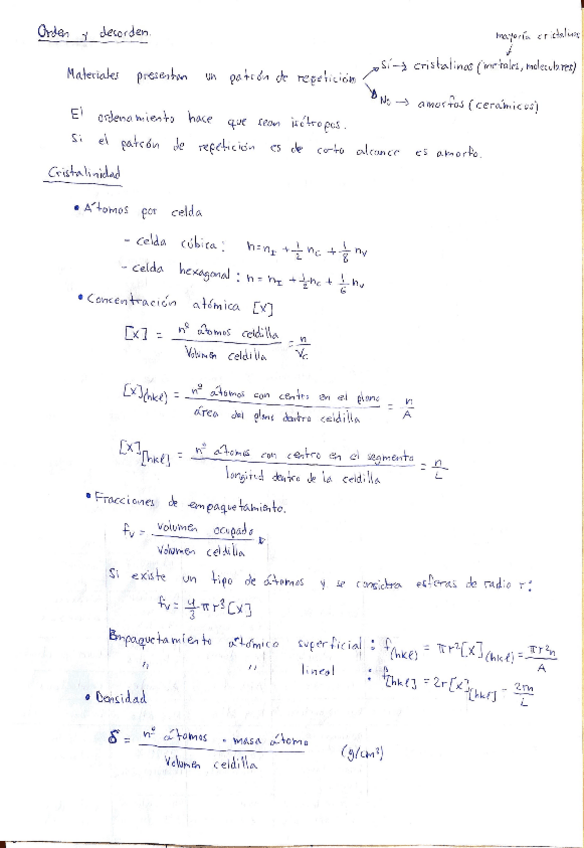 Orden y desorden.
mayoría cristalinos
Materiales presentan un patrón de repetición
Sí → cristalinos (metales, moleculares)
No → amorfos (cerámicos)
El ordenamiento hace que sean isótropos.
Si el patrón de repetición es de corto alcance es amorfo.
Cristalinidad
• Átomos por celda
- celda cúbica: n = n_I + 1/2 n_C + 1/8 n_V
- celda hexagonal: n = n_I + 1/2 n_C + 1/6 n_V
• Concentración atómica [X]
[X] = nº átomos celdilla / Volumen celdilla = n / V_C
[X](hkl) = nº átomos con centro en el plano / área del plano dentro celdilla = n / A
[X][hkl] = nº átomos con centro en el segmento / longitud dentro de la celdilla = n / L
• Fracciones de empaquetamiento.
f_v = volumen ocupado / Volumen celdilla
Si existe un tipo de átomos y se considera esferas de radio r:
f_v = 4/3 π r³ [X]
Empaquetamiento atómico superficial: f(hkl) = πr² [X](hkl) = πr²n / A
" " lineal : f[hkl] = 2r [X][hkl] = 2rn / L
• Densidad
δ = nº átomos · masa átomo / Volumen celdilla (g/cm³)